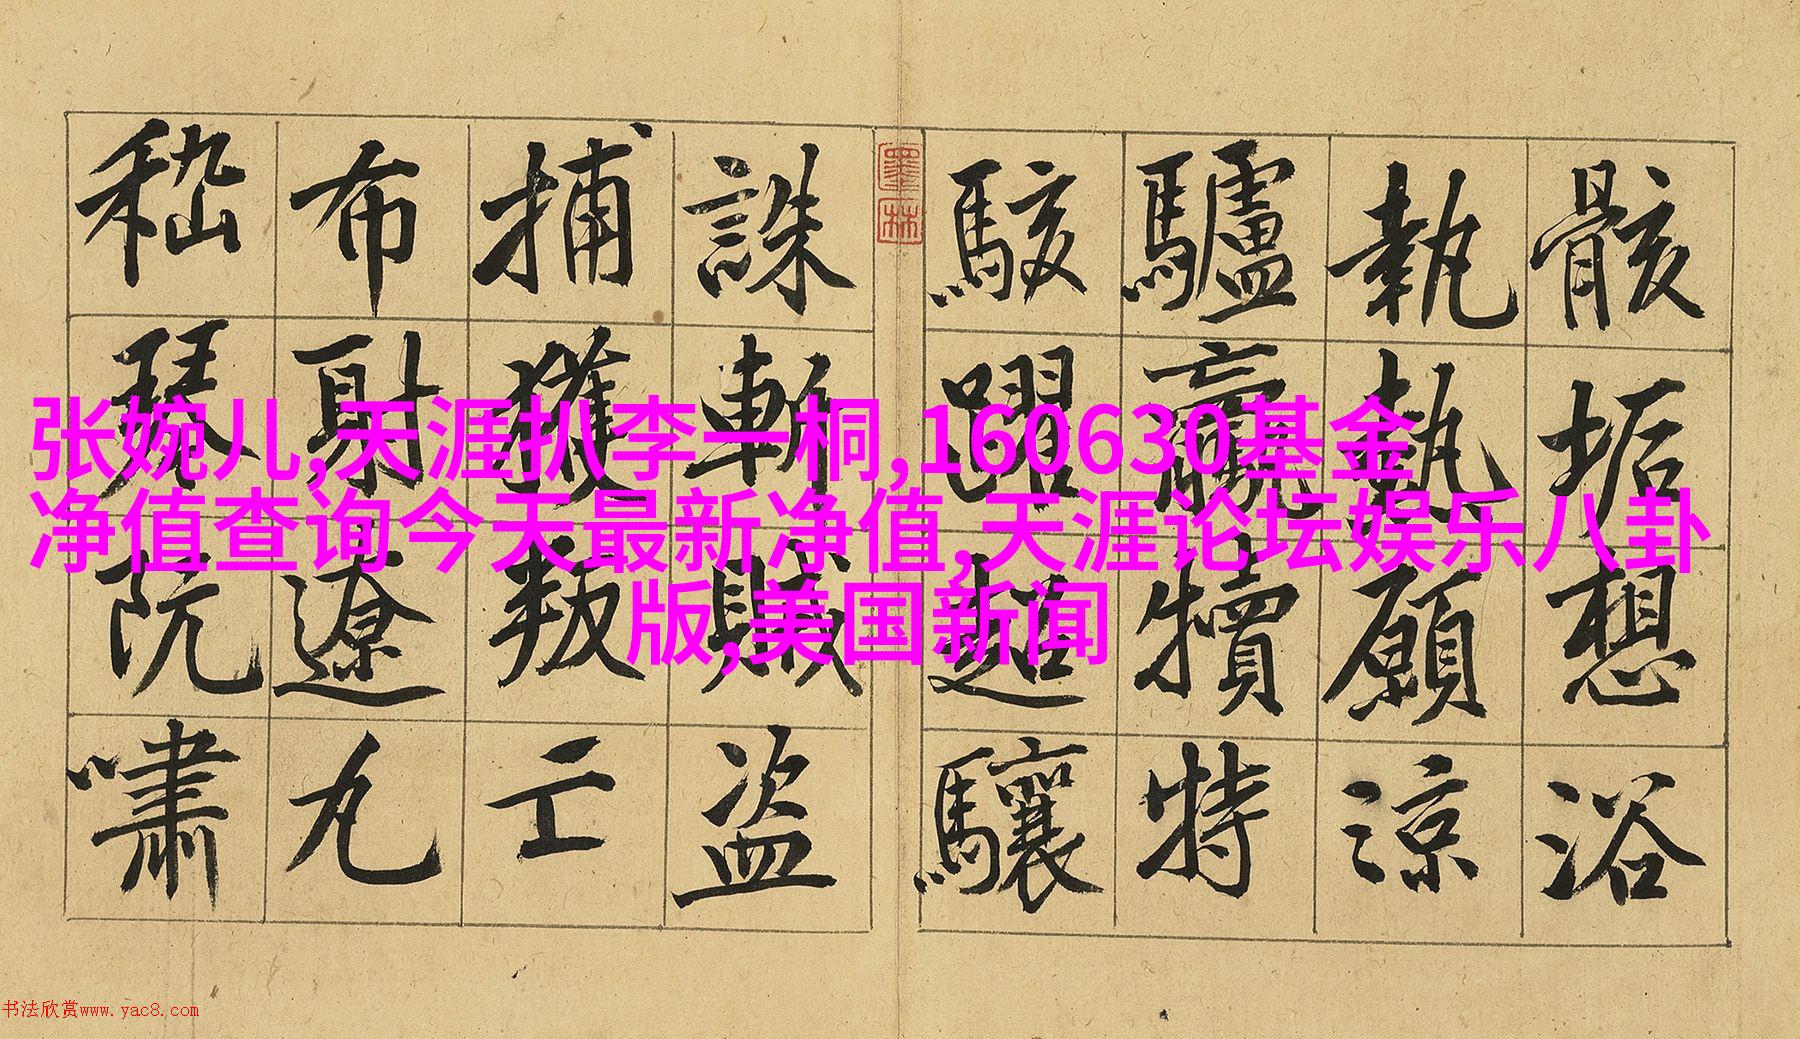 骸垢想浴
執熱願涼
驢驘犢特
駭躍超驤
誅斬賊盜
捕獲叛亡
布射遼丸
嵇琴阮嘯
张婉儿,天涯扒李一桐,160630基金
净值查询今天最新净值,天涯论坛娱乐八卦
版,美国新闻
书法欣赏www.yac8.com